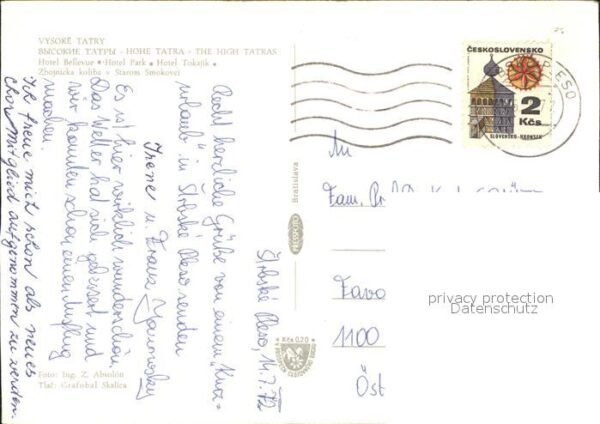 VYSOKÉ TATRY
ВЫСОКИЕ ТАТРЫ - HOHE TATRA - THE HIGH TATRAS
Hotel Bellevue • Hotel Park • Hotel Tokajík •
Zbojnícka koliba v Starom Smokovci
Štrbské Pleso, 14.7.72
Recht herzliche Grüße von einem "Kurz=
urlaub" in Štrbské Pleso senden
Irene u. Franz Janowsky
Es ist hier wirklich wunderschön
Das Wetter hat sich gebessert und
wir konnten schon einen Ausflug
machen
Ich freue mich schon als neues
Chormitglied aufgenommen zu werden.
Foto: Ing. Z. Absolón
Tlač: Grafobal Skalica
Bratislava
PRESSFOTO
Kčs 0,20
ČESKOSLOVENSKO
2
Kčs
SLOVENSKO - HRONSEK
PLESO
An
Fam.
Favo
1100
Öst
privacy protection
Datenschutz